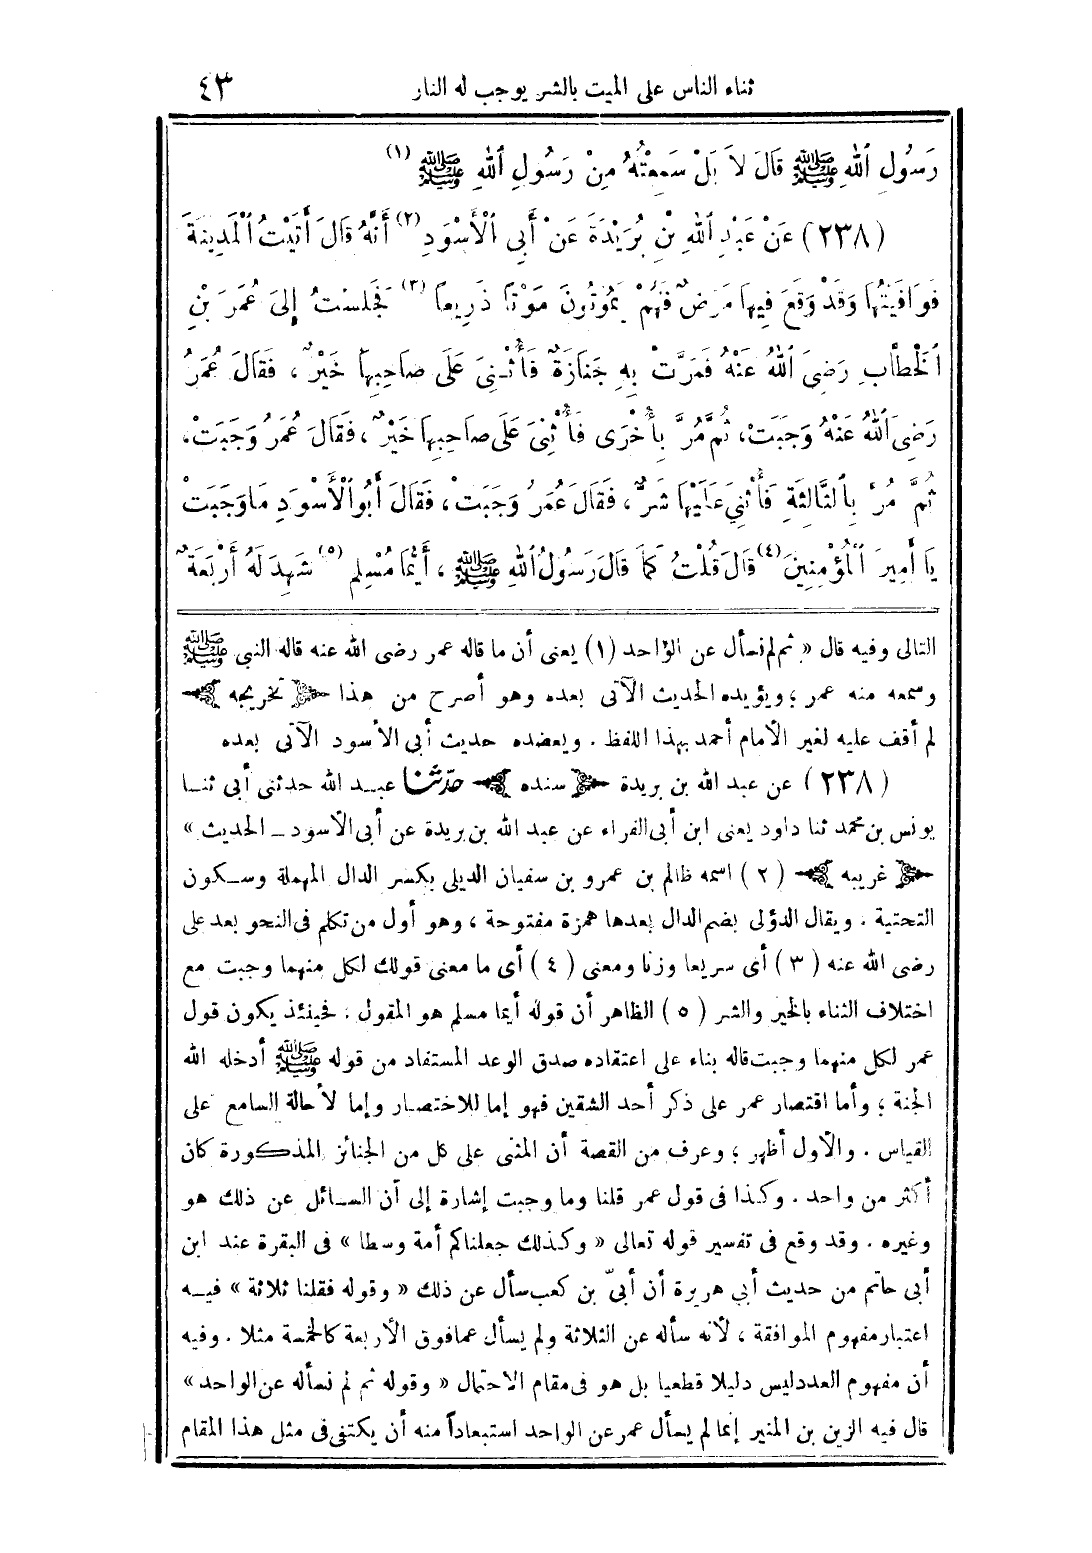 ثناء الناس على الميت بالشر يوجب له النار ٤٣
رَسُولِ ٱللهِ ﷺ قَالَ لاَ بَلْ سَمِعْتُهُ مِنْ رَسُولِ ٱللهِ ﷺ (١)
(٢٣٨) عَنْ عَبْدِ ٱللهِ بْنِ بُرَيْدَةَ عَنْ أَبِى ٱلْأَسْوَدِ (٢) أَنَّهُ قَالَ أَتَيْتُ ٱلْمَدِينَةَ
فَوَافَيْتُهَا وَقَدْ وَقَعَ فِيهَا مَرَضٌ فَهُمْ يَمُوتُونَ مَوْتًا ذَرِيعًا (٣) فَجَلَسْتُ إِلَى عُمَرَ بْنِ
ٱلْخَطَّابِ رَضِىَ ٱللهُ عَنْهُ فَمَرَّتْ بِهِ جَنَازَةٌ فَأُثْنِىَ عَلَى صَاحِبِهَا خَيْرٌ ، فَقَالَ عُمَرُ
رَضِىَ ٱللهُ عَنْهُ وَجَبَتْ، ثُمَّ مُرَّ بِأُخْرَى فَأُثْنِىَ عَلَى صَاحِبِهَا خَيْرٌ ، فَقَالَ عُمَرُ وَجَبَتْ،
ثُمَّ مُرَّ بِٱلثَّالِثَةِ فَأُثْنِىَ عَلَيْهَا شَرٌّ ، فَقَالَ عُمَرُ وَجَبَتْ ، فَقَالَ أَبُو ٱلْأَسْوَدِ مَا وَجَبَتْ
يَا أَمِيرَ ٱلْمُؤْمِنِينَ (٤) قَالَ قُلْتُ كَمَا قَالَ رَسُولُ ٱللهِ ﷺ ، أَيُّمَا مُسْلِمٍ (٥) شَهِدَ لَهُ أَرْبَعَةٌ
التالى وفيه قال « ثم لم نسأل عن الواحد (١) يعنى أن ما قاله عمر رضى الله عنه قاله النبى ﷺ
وسمعه منه عمر ؛ ويؤيده الحديث الآتى بعده وهو أصرح من هذا ﴿ تخريجه ﴾
لم أقف عليه لغير الأمام أحمد بهذا اللفظ . ويعضده حديث أبى الأسود الآتى بعده
(٢٣٨) عن عبد الله بن بريدة ﴿ سنده ﴾ حدّثنا عبد الله حدثنى أبى ثنا
يونس بن محمد ثنا داود يعنى ابن أبى الفراء عن عبد الله بن بريدة عن أبى الأسود ــ الحديث »
﴿ غريبه ﴾ (٢) اسمه ظالم بن عمرو بن سفيان الديلى بكسر الدال المهملة وسكون
التحتية . ويقال الدؤلى بضم الدال بعدها همزة مفتوحة ، وهو أول من تكلم فى النحو بعد على
رضى الله عنه (٣) أى سريعا وزنا ومعنى (٤) أى ما معنى قولك لكل منهما وجبت مع
اختلاف الثناء بالخير والشر (٥) الظاهر أن قوله أيما مسلم هو المقول ، فحينئذ يكون قول
عمر لكل منهما وجبت قاله بناء على اعتقاده صدق الوعد المستفاد من قوله ﷺ أدخله الله
الجنة ؛ وأما اقتصار عمر على ذكر أحد الشقين فهو إما للاختصار وإما لأحالة السامع على
القياس . والأول أظهر ؛ وعرف من القصة أن المثنى على كل من الجنائز المذكورة كان
أكثر من واحد . وكذا فى قول عمر قلنا وما وجبت إشارة إلى أن السائل عن ذلك هو
وغيره . وقد وقع فى تفسير قوله تعالى « وكذلك جعلناكم أمة وسطا » فى البقرة عند ابن
أبى حاتم من حديث أبي هريرة أن أبىّ بن كعب سأل عن ذلك « وقوله فقلنا ثلاثة » فيه
اعتبار مفهوم الموافقة ، لأنه سأله عن الثلاثة ولم يسأل عما فوق الأربعة كالخمسة مثلا . وفيه
أن مفهوم العدد ليس دليلا قطعيا بل هو فى مقام الاحتمال « وقوله ثم لم نسأله عن الواحد »
قال فيه الزين بن المنير إنما لم يسأل عمر عن الواحد استبعاداً منه أن يكتفى فى مثل هذا المقام